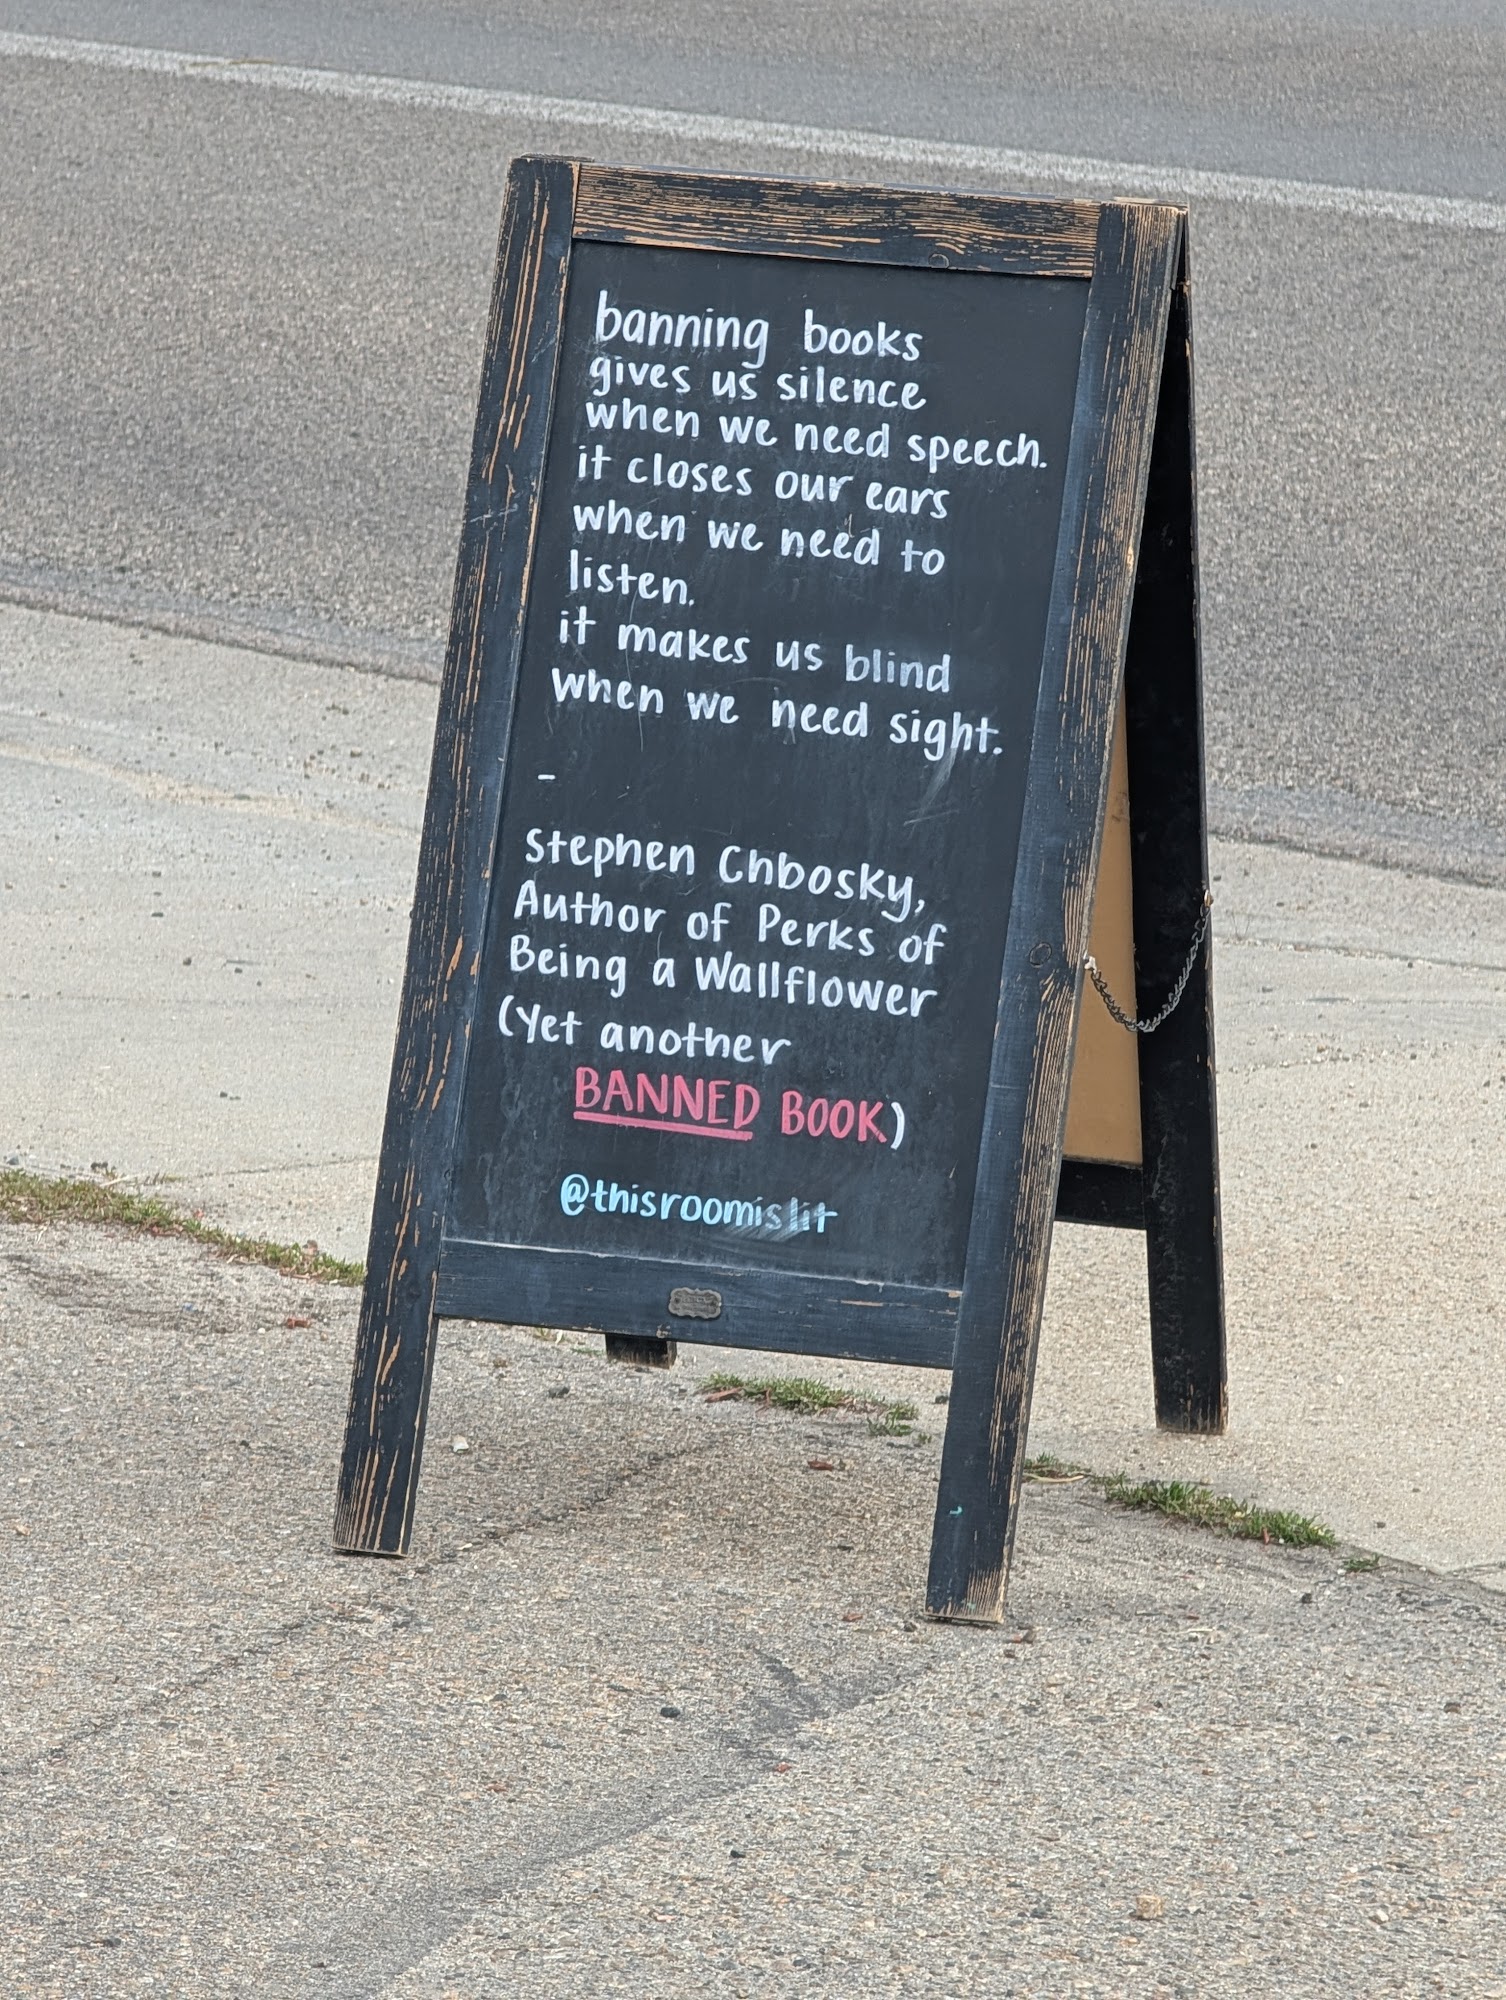 banning books
gives us silence
when we need speech.
it closes our ears
when we need to
listen.
it makes us blind
when we need sight.
-
Stephen Chbosky,
Author of Perks of
Being a Wallflower
(Yet another
BANNED BOOK)
@thisroomislit